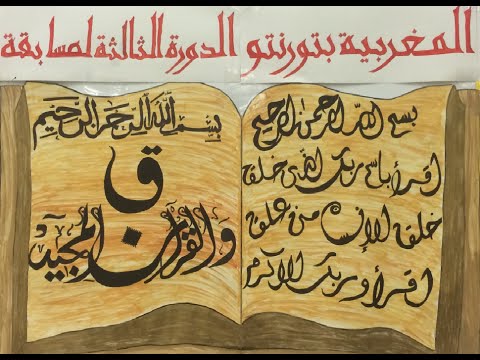 المغربية بتورنتو الدورة الثالثة لمسابقة
بسم الله الرحمن الرحيم
اقرأ باسم ربك الذي خلق
خلق الإنسان من علق
اقرأ وربك الأكرم
بِسْمِ اللَّهِ الرَّحْمَنِ الرَّحِيمِ
ق
وَالقُرْآنِ المَجِيدِ